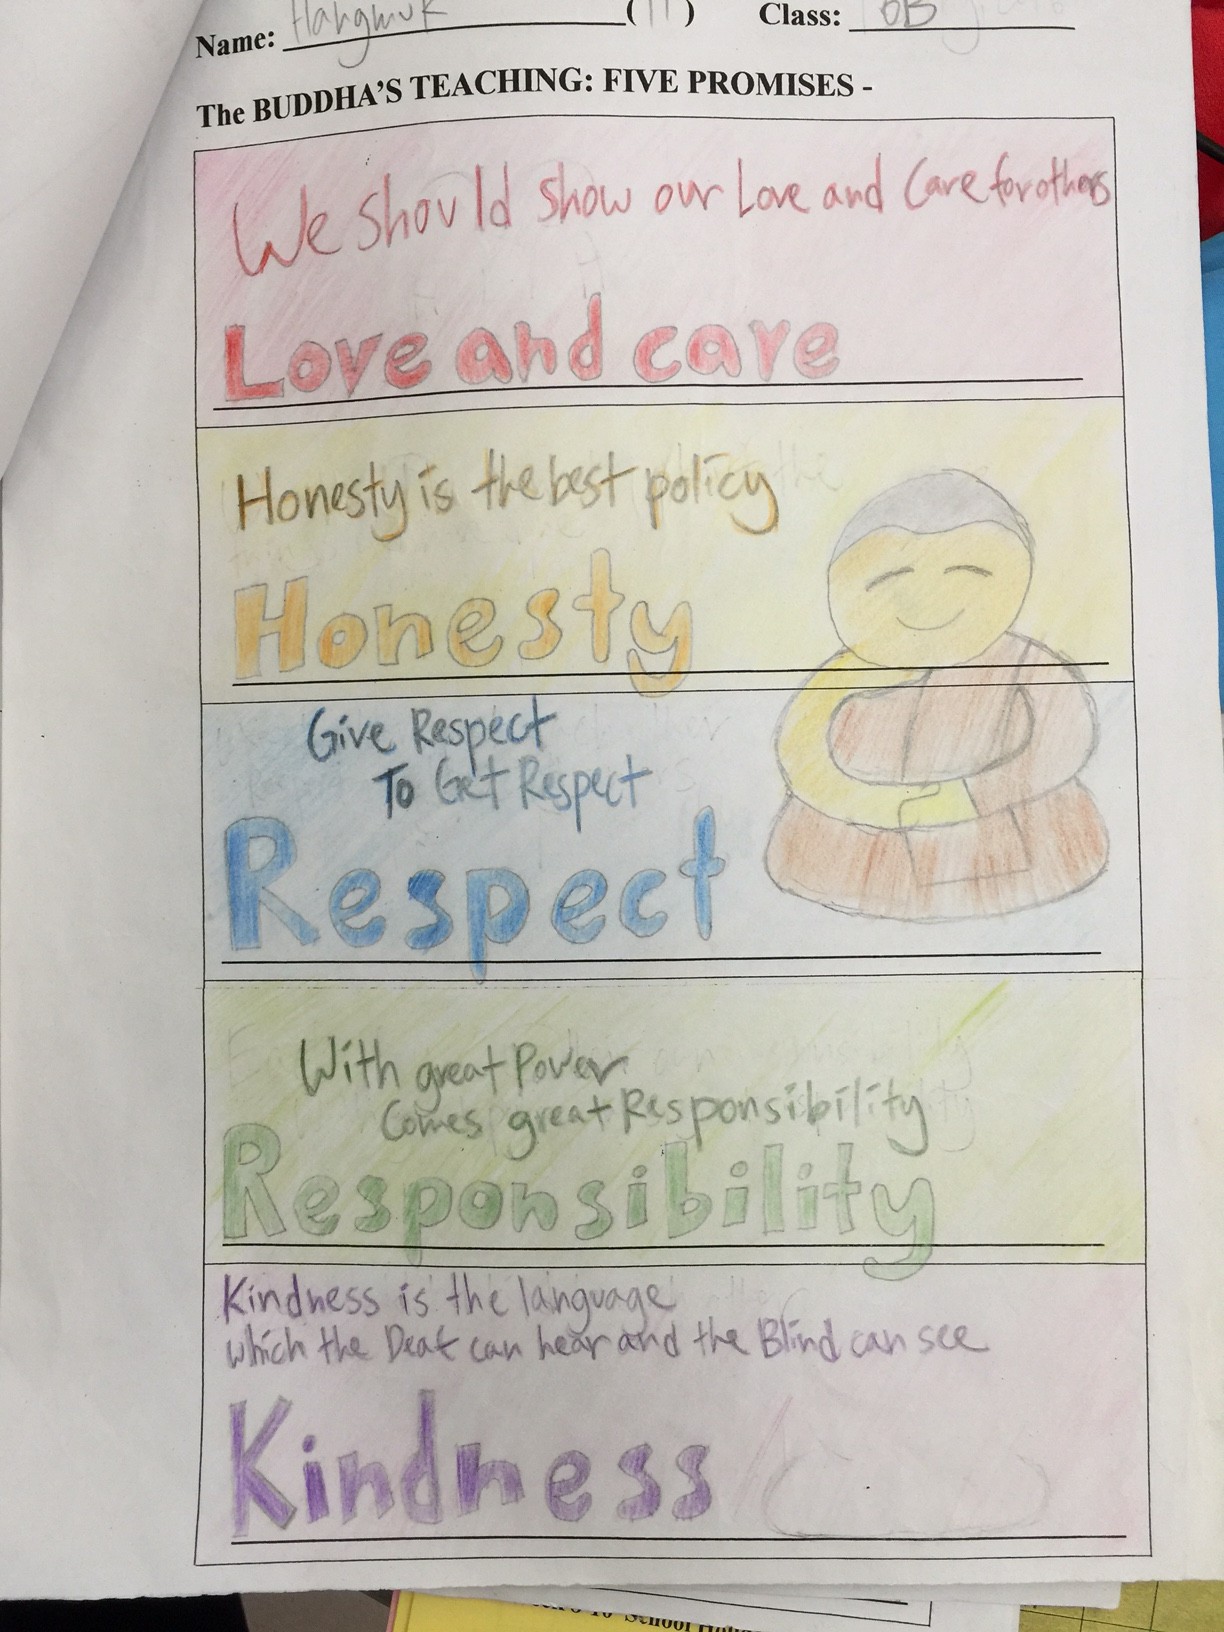 Name: Hangmuk (11) Class:
The BUDDHA'S TEACHING: FIVE PROMISES -
We should show our Love and Care for others
Love and care
Honesty is the best policy
Honesty
Give Respect
To Get Respect
Respect
With great Power
Comes great Responsibility
Responsibility
Kindness is the language
which the Deaf can hear and the Blind can see
Kindness
School